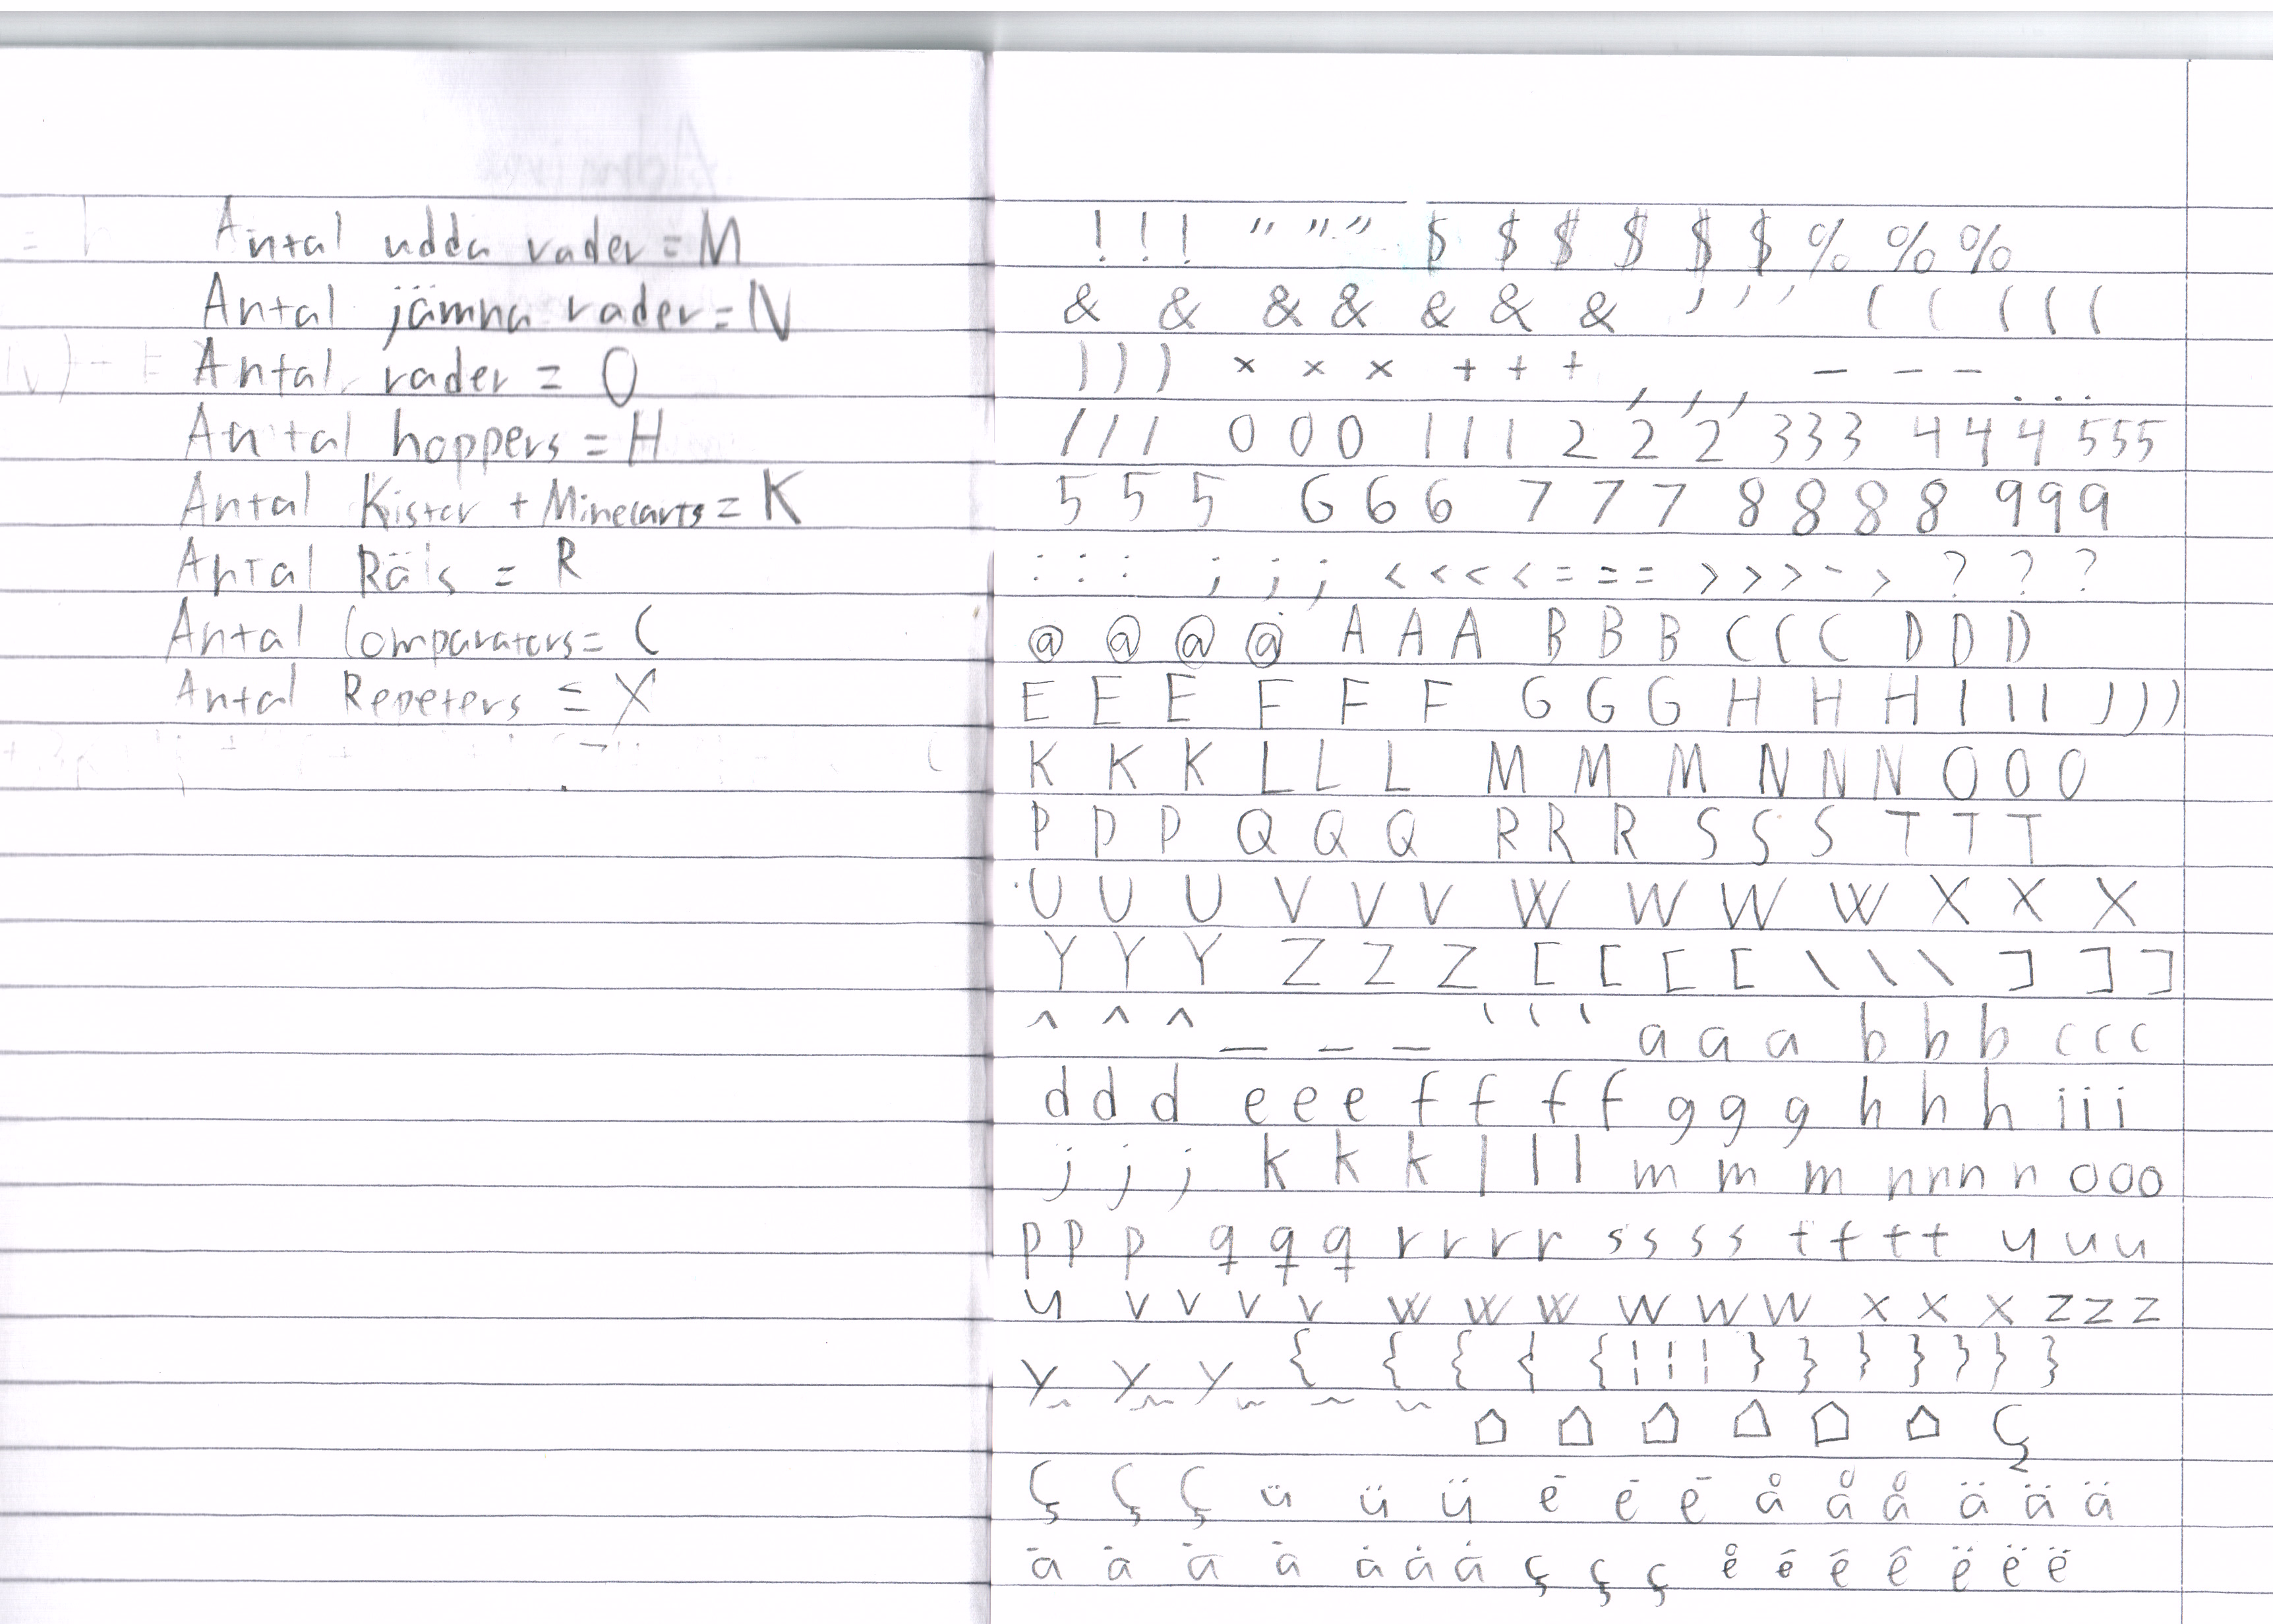 Antal udda rader = M
Antal jämna rader = N
Antal rader = O
Antal hoppers = H
Antal Kistor + Minecarts = K
Antal Räls = R
Antal Comparators = C
Antal Repeters = X
! ! ! " " " $ $ $ $ $ $ % % %
& & & & & & & ' ' ' ( ( ( ( (
) ) ) × × × + + + , , , - - - . . .
/ / / 0 0 0 1 1 1 2 2 2 3 3 3 4 4 4 5 5 5
5 5 5 6 6 6 7 7 7 8 8 8 8 9 9 9
: : : ; ; ; < < < < = = = > > > - > ? ? ?
@ @ @ @ A A A B B B C C C D D D
E E E F F F G G G H H H I I I J J J
K K K L L L M M M N N N O O O
P P P Q Q Q R R R S S S T T T
U U U V V V W W W W X X X
Y Y Y Z Z Z [ [ [ [ \ \ \ ] ] ]
^ ^ ^ _ _ _ ` ` ` a a a b b b c c c
d d d e e e f f f f g g g h h h i i i
j j j k k k l l l m m m n n n n o o o
p p p q q q r r r r s s s s t t t t u u u
u v v v v w w w w w w x x x z z z
y y y { { { { { ¦ ¦ ¦ } } } } } } }
~ ~ ~ ~ ~ ⌂ ⌂ ⌂ ⌂ ⌂ ⌂ Ç
Ç Ç Ç ü ü ü é é é å å å ä ä ä
à à à à å å å ç ç ç ê ê ê ê ë ë ë